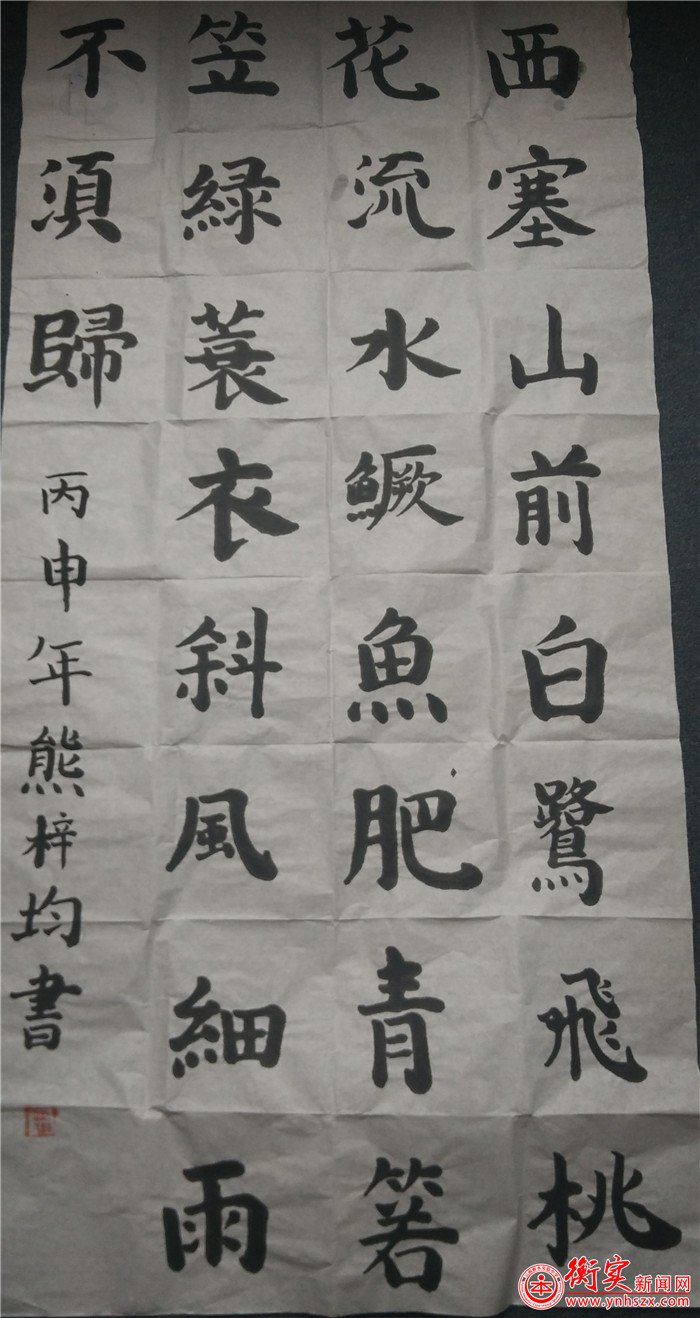 西塞山前白鷺飛桃
花流水鱖魚肥青箬
笠緑蓑衣斜風細雨
不須歸
丙申年熊梓均書
衡实新闻网
www.ynhszx.com